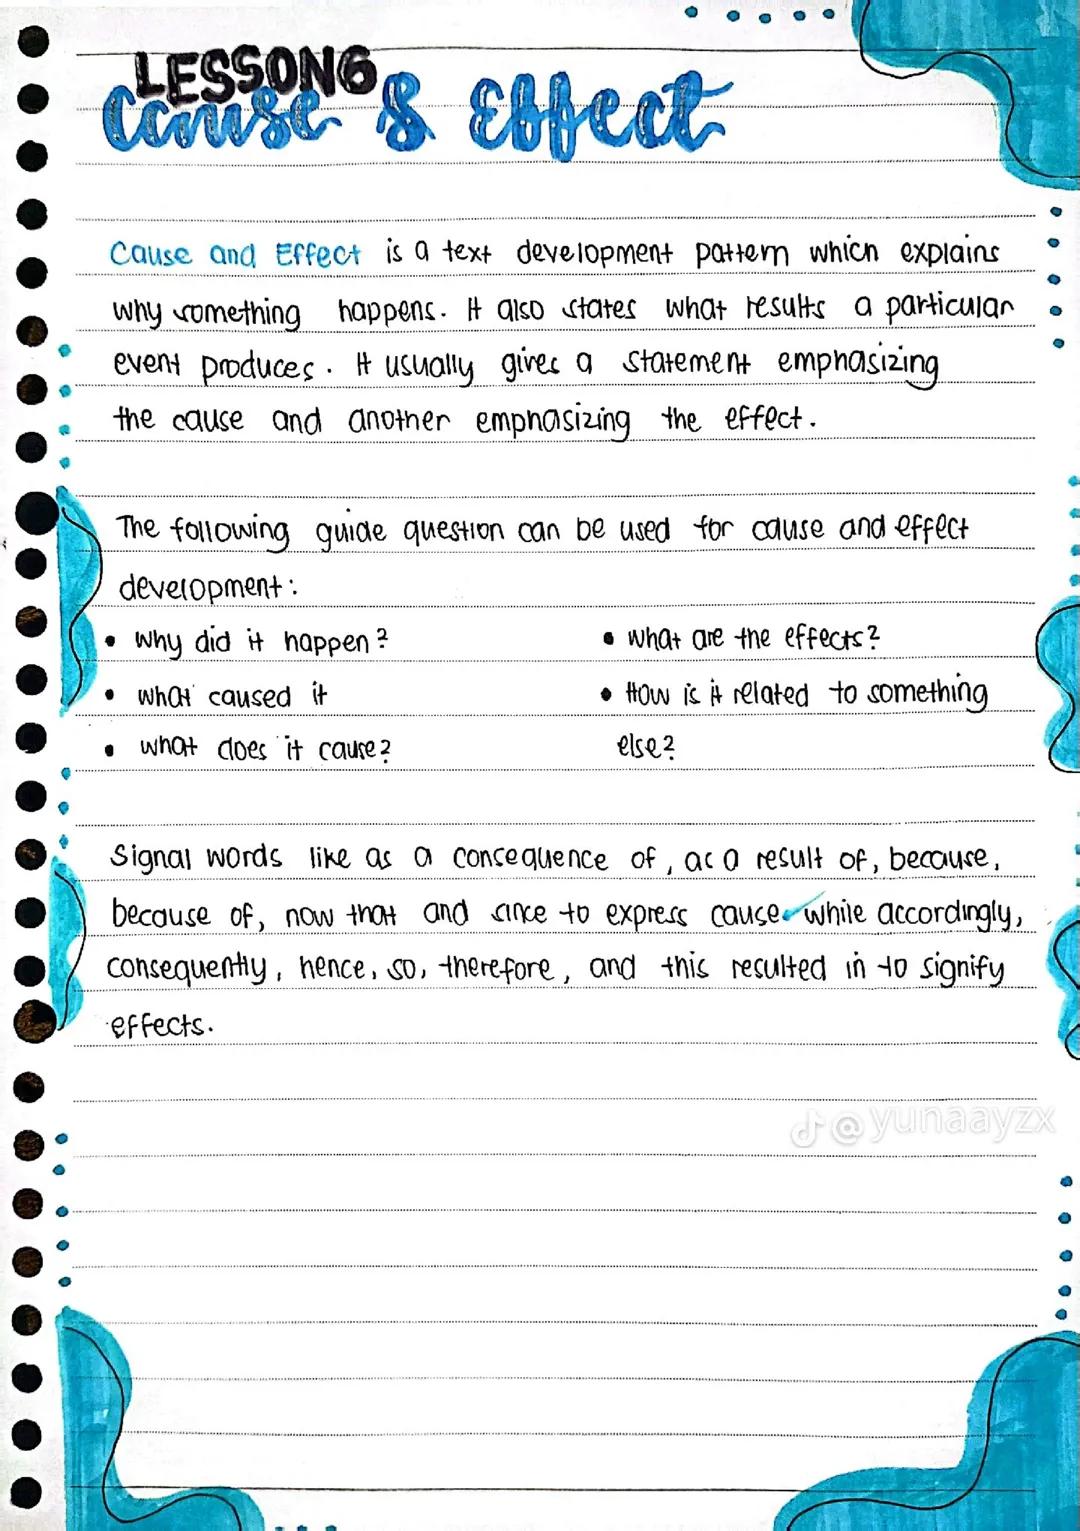 LESSON6
Cause & Effect
Cause and Effect is a text development pattern which explains
why something happens. It also states what results a particular
event produces. It usually gives a statement emphasizing
the cause and another emphasizing the effect.
The following guide question can be used for cause and effect
development:
• Why did it happen?
• what caused it
• what does it cause?
• what are the effects?
• How is it related to something
else?
Signal words like as a consequence of, as a result of, because,
because of, now that and since to express cause while accordingly,
consequently, hence, so, therefore, and this resulted in to signify
effects.
@yunaayzx